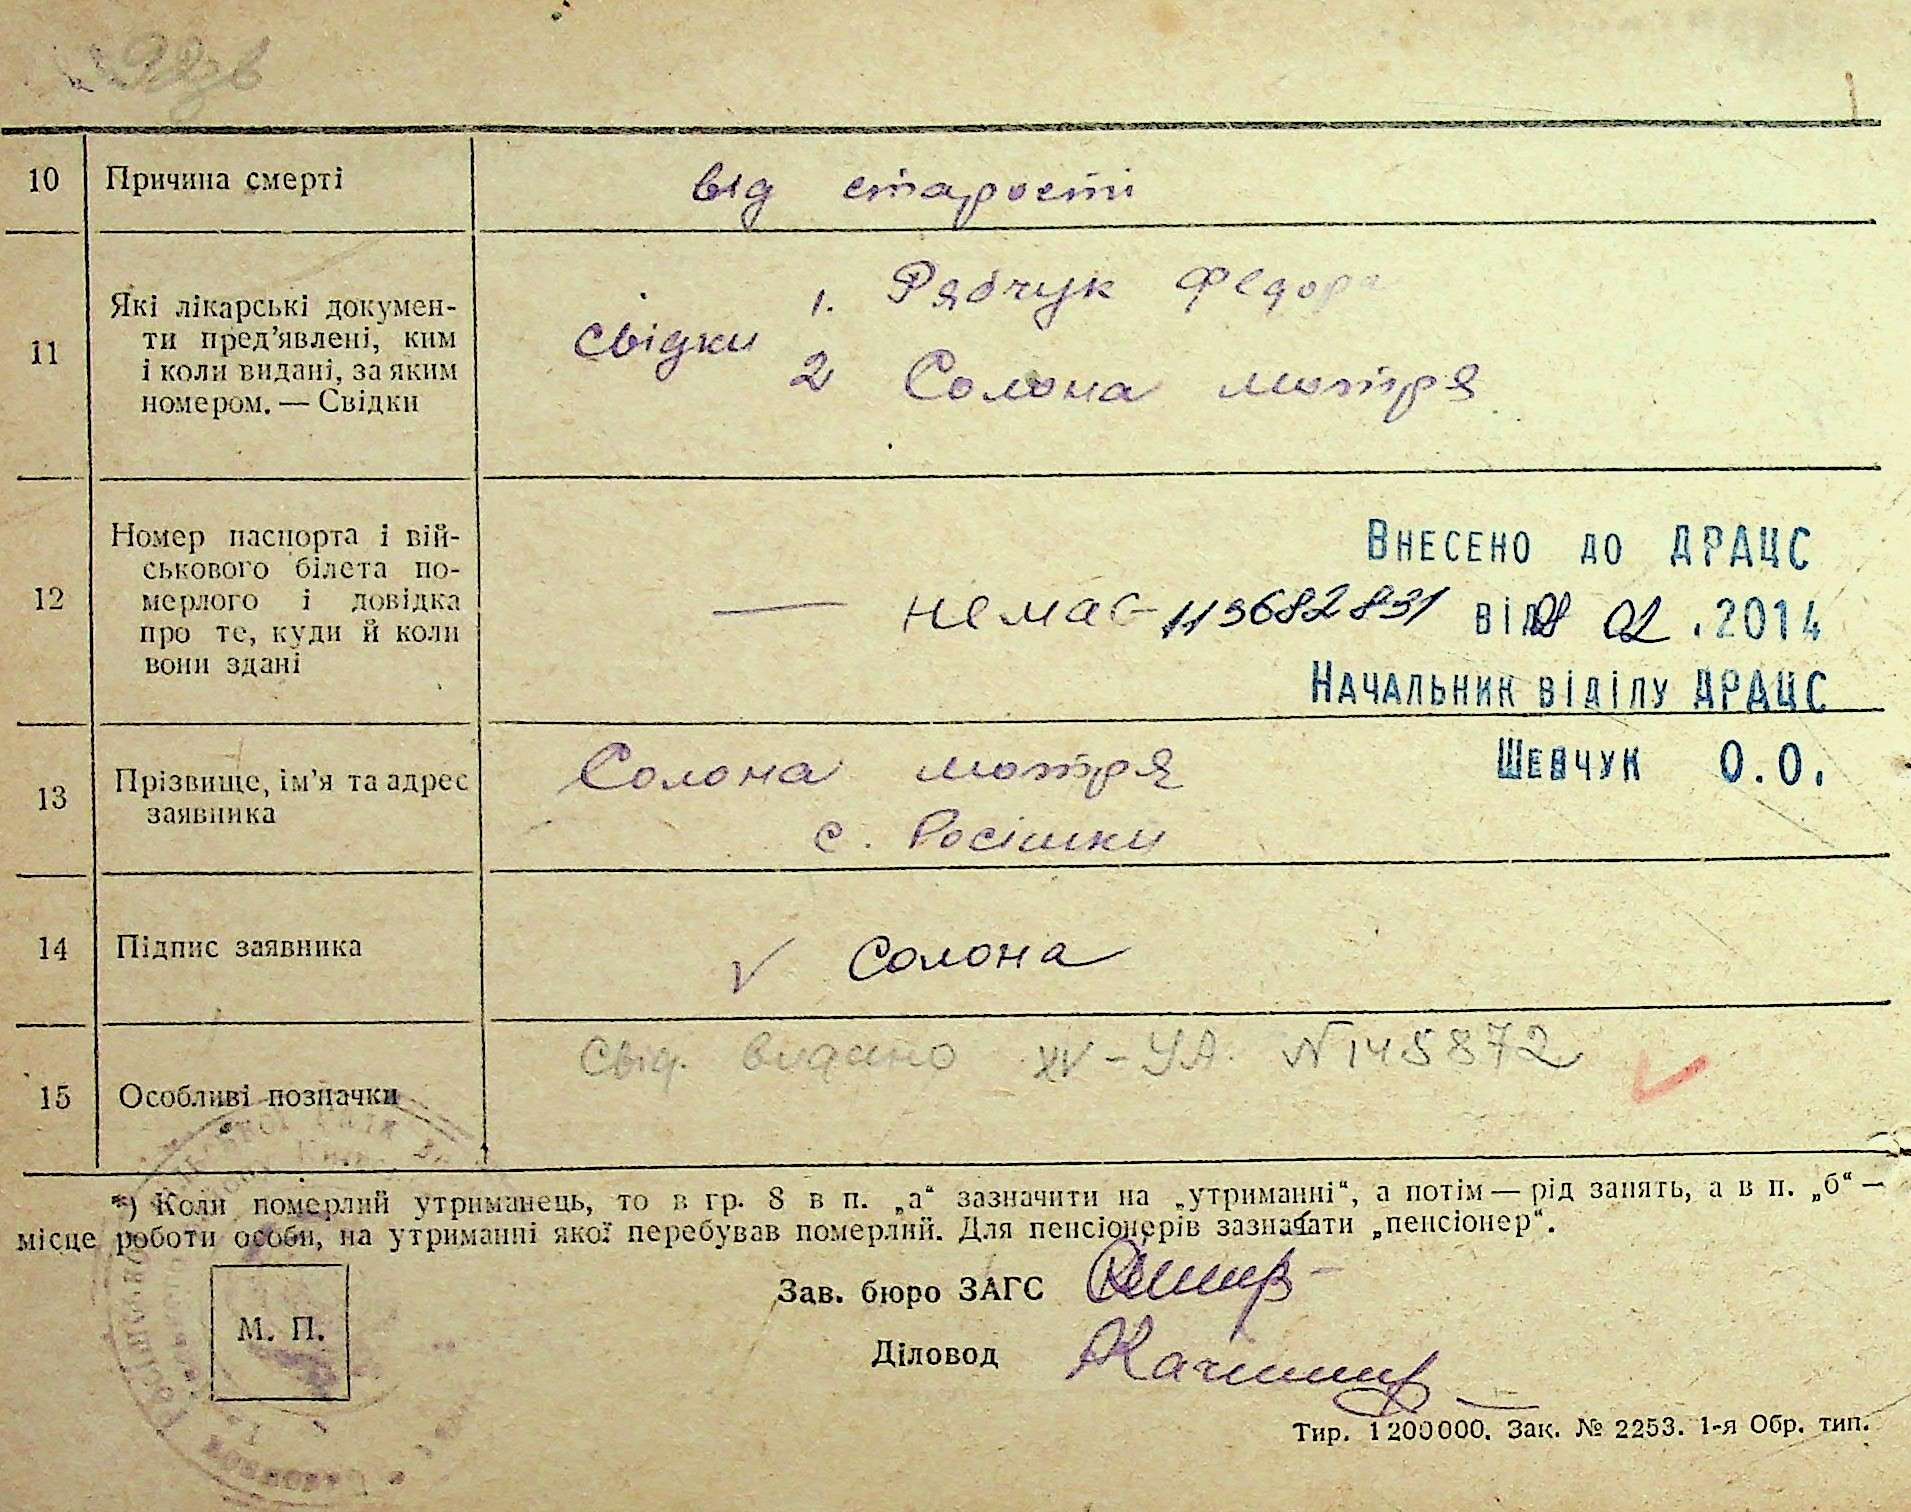 10 Причина смерті від старости
11 Які лікарські докумен-
ти пред'явлені, ким
і коли видані, за яким
номером. — Свідки
свідки 1. Рябчук Федора
2 Солона мотря
12 Номер паспорта і вій-
ськового білета по-
мерлого і довідка
про те, куди й коли
вони здані
— немає
Внесено до ДРАЦС
113682831 від 02 .2014
Начальник відділу ДРАЦС
Шевчук О.О.
13 Прізвище, ім'я та адрес
заявника
Солона мотря
с. Росішки
14 Підпис заявника v Солона
15 Особливі позначки
Свід. видано IV-УА. №145872
*) Коли померлий утриманець, то в гр. 8 в п. „а“ зазначити на „утриманні“, а потім — рід занять, а в п. „б“ —
місце роботи особи, на утриманні якої перебував померлий. Для пенсіонерів зазначати „пенсіонер“.
Зав. бюро ЗАГС
М. П.
Діловод
Тир. 1200000. Зак. № 2253. 1-я Обр. тип.